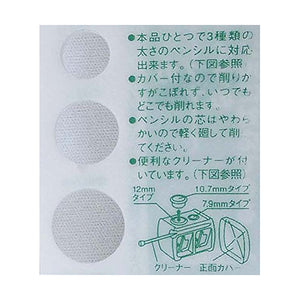 ●本品ひとつで3種類の
太さのペンシルに対応
出来ます。(下図参照)
●カバー付なので削りか
すがこぼれず、いつでも
どこでも削れます。
●ペンシルの芯はやわら
かいので軽く廻して削っ
てください。
●便利なクリーナーが付
いています。(下図参照)
12mm
タイプ
10.7mmタイプ
7.9mmタイプ
クリーナー
正面カバー